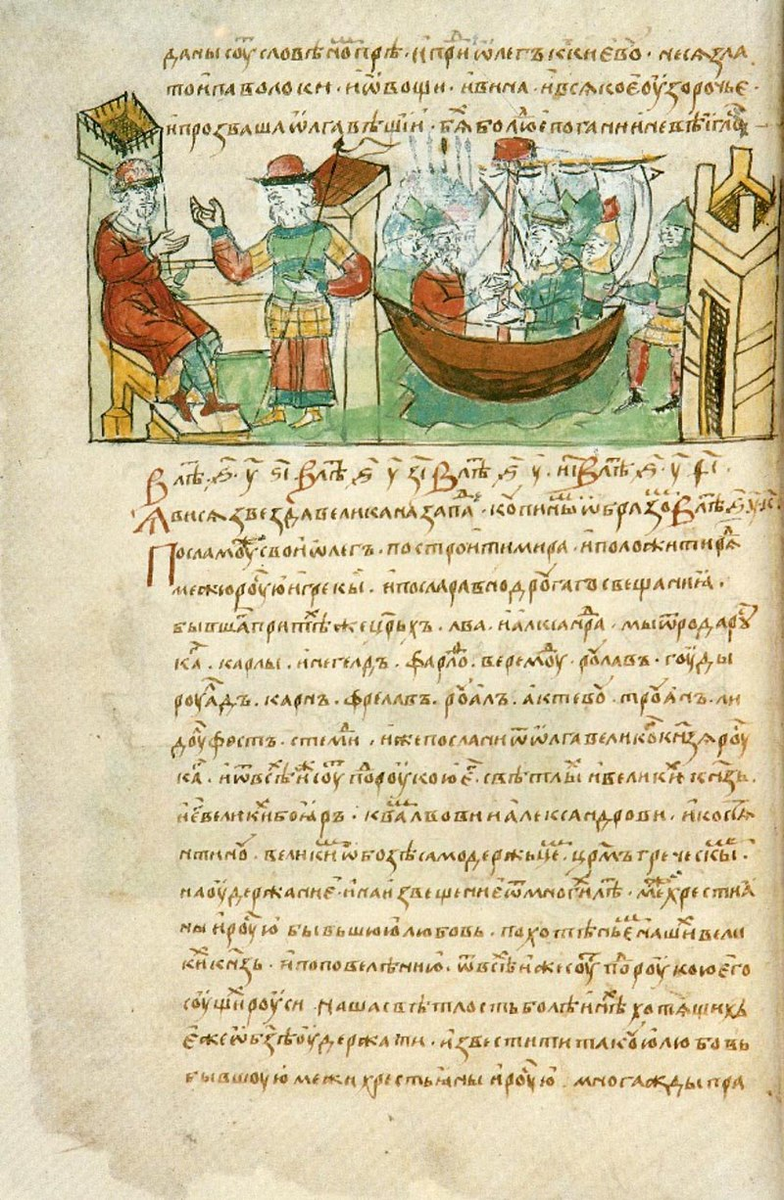 даны соуⷮ словѣ́номъ прѣ҇. и҆ прїи҆ де ѡ҆легъ къ кн҃евоу. неся зла
то и҆ паволоки. и҆ ѡ҆вощи. и҆ вина. и҆ всякое оу҆зорочье.
и҆ прозваша ѡ҆лга вѣщїи. бѧⷯ бо люⷣе погани и҆ невѣигло
В лѣⷮ. ѕ҃. у҃. є҃ı. В лѣⷮ. ѕ҃. у҃. зı҃. В лѣⷮ. ѕ҃. у҃. иı҃. В лѣⷮ. ѕ҃. у҃. ѳı҃.
Явися звезда велика на запаⷣ. копинымъ ѡ҆бразоⷨ. В лѣⷮ. ѕ҃. у҃. к҃.
Посла моуⷤ свои ѡ҆легъ. построити мира. и҆ положити ряⷣ
межю роуⷭю и҆ грекы. и҆ посла равно дроугаго свещания.
бывшаⷢ при тѣⷯже цр҃ьхъ. лва. и҆ алкса́нⷣра. мы ѿ рода роуⷭ
каⷢ. карлы. и҆негелдъ. фарлоⷴ. веремоуⷣ. роулавъ. гоуды
роуалдъ. карнъ. фрелавъ. роуалъ. актевоу. троуанъ. ли
доуⷧ фостъ. стемиⷣ. и҆же послани ѿ ѡ҆лга великоⷢ кнѧзя роуⷭ
каⷢ. и҆ ѿ всѣⷯ и҆ⷤ соуⷮ поⷣ роукою еⷢ. свѣтлыⷯ и҆ великиⷯ кнѧзь.
и҆ еⷢ великиⷯ бояръ. к ваⷨ львови и҆ александрови. и҆ костѧⷩ
тиноу. великиⷨ ѡ҆ бозѣ самодержьцеⷨ. црⷭмъ греческыⷨ.
на оу҆держание. и҆ на и҆звещение ѿ многиⷯ лѣⷮ. меⷤ хрестиа
ны и҆ роуⷭю бывьшюю любовь. похотѣньеⷨ нашиⷯ вели
киⷯ кнѧзь. и҆ по повелѣнию. ѿ всѣⷯ и҆же соуⷮ поⷣ роукою его
соущиⷯ роуси. наша свѣтлость болѣ инѣⷯ хотящихъ
еже ѡ҆ бз҃ѣ оу҆держати. и҆звестити такоую любовь
бывшоую межи хрестьяны и҆ роуⷭю. многажды пра